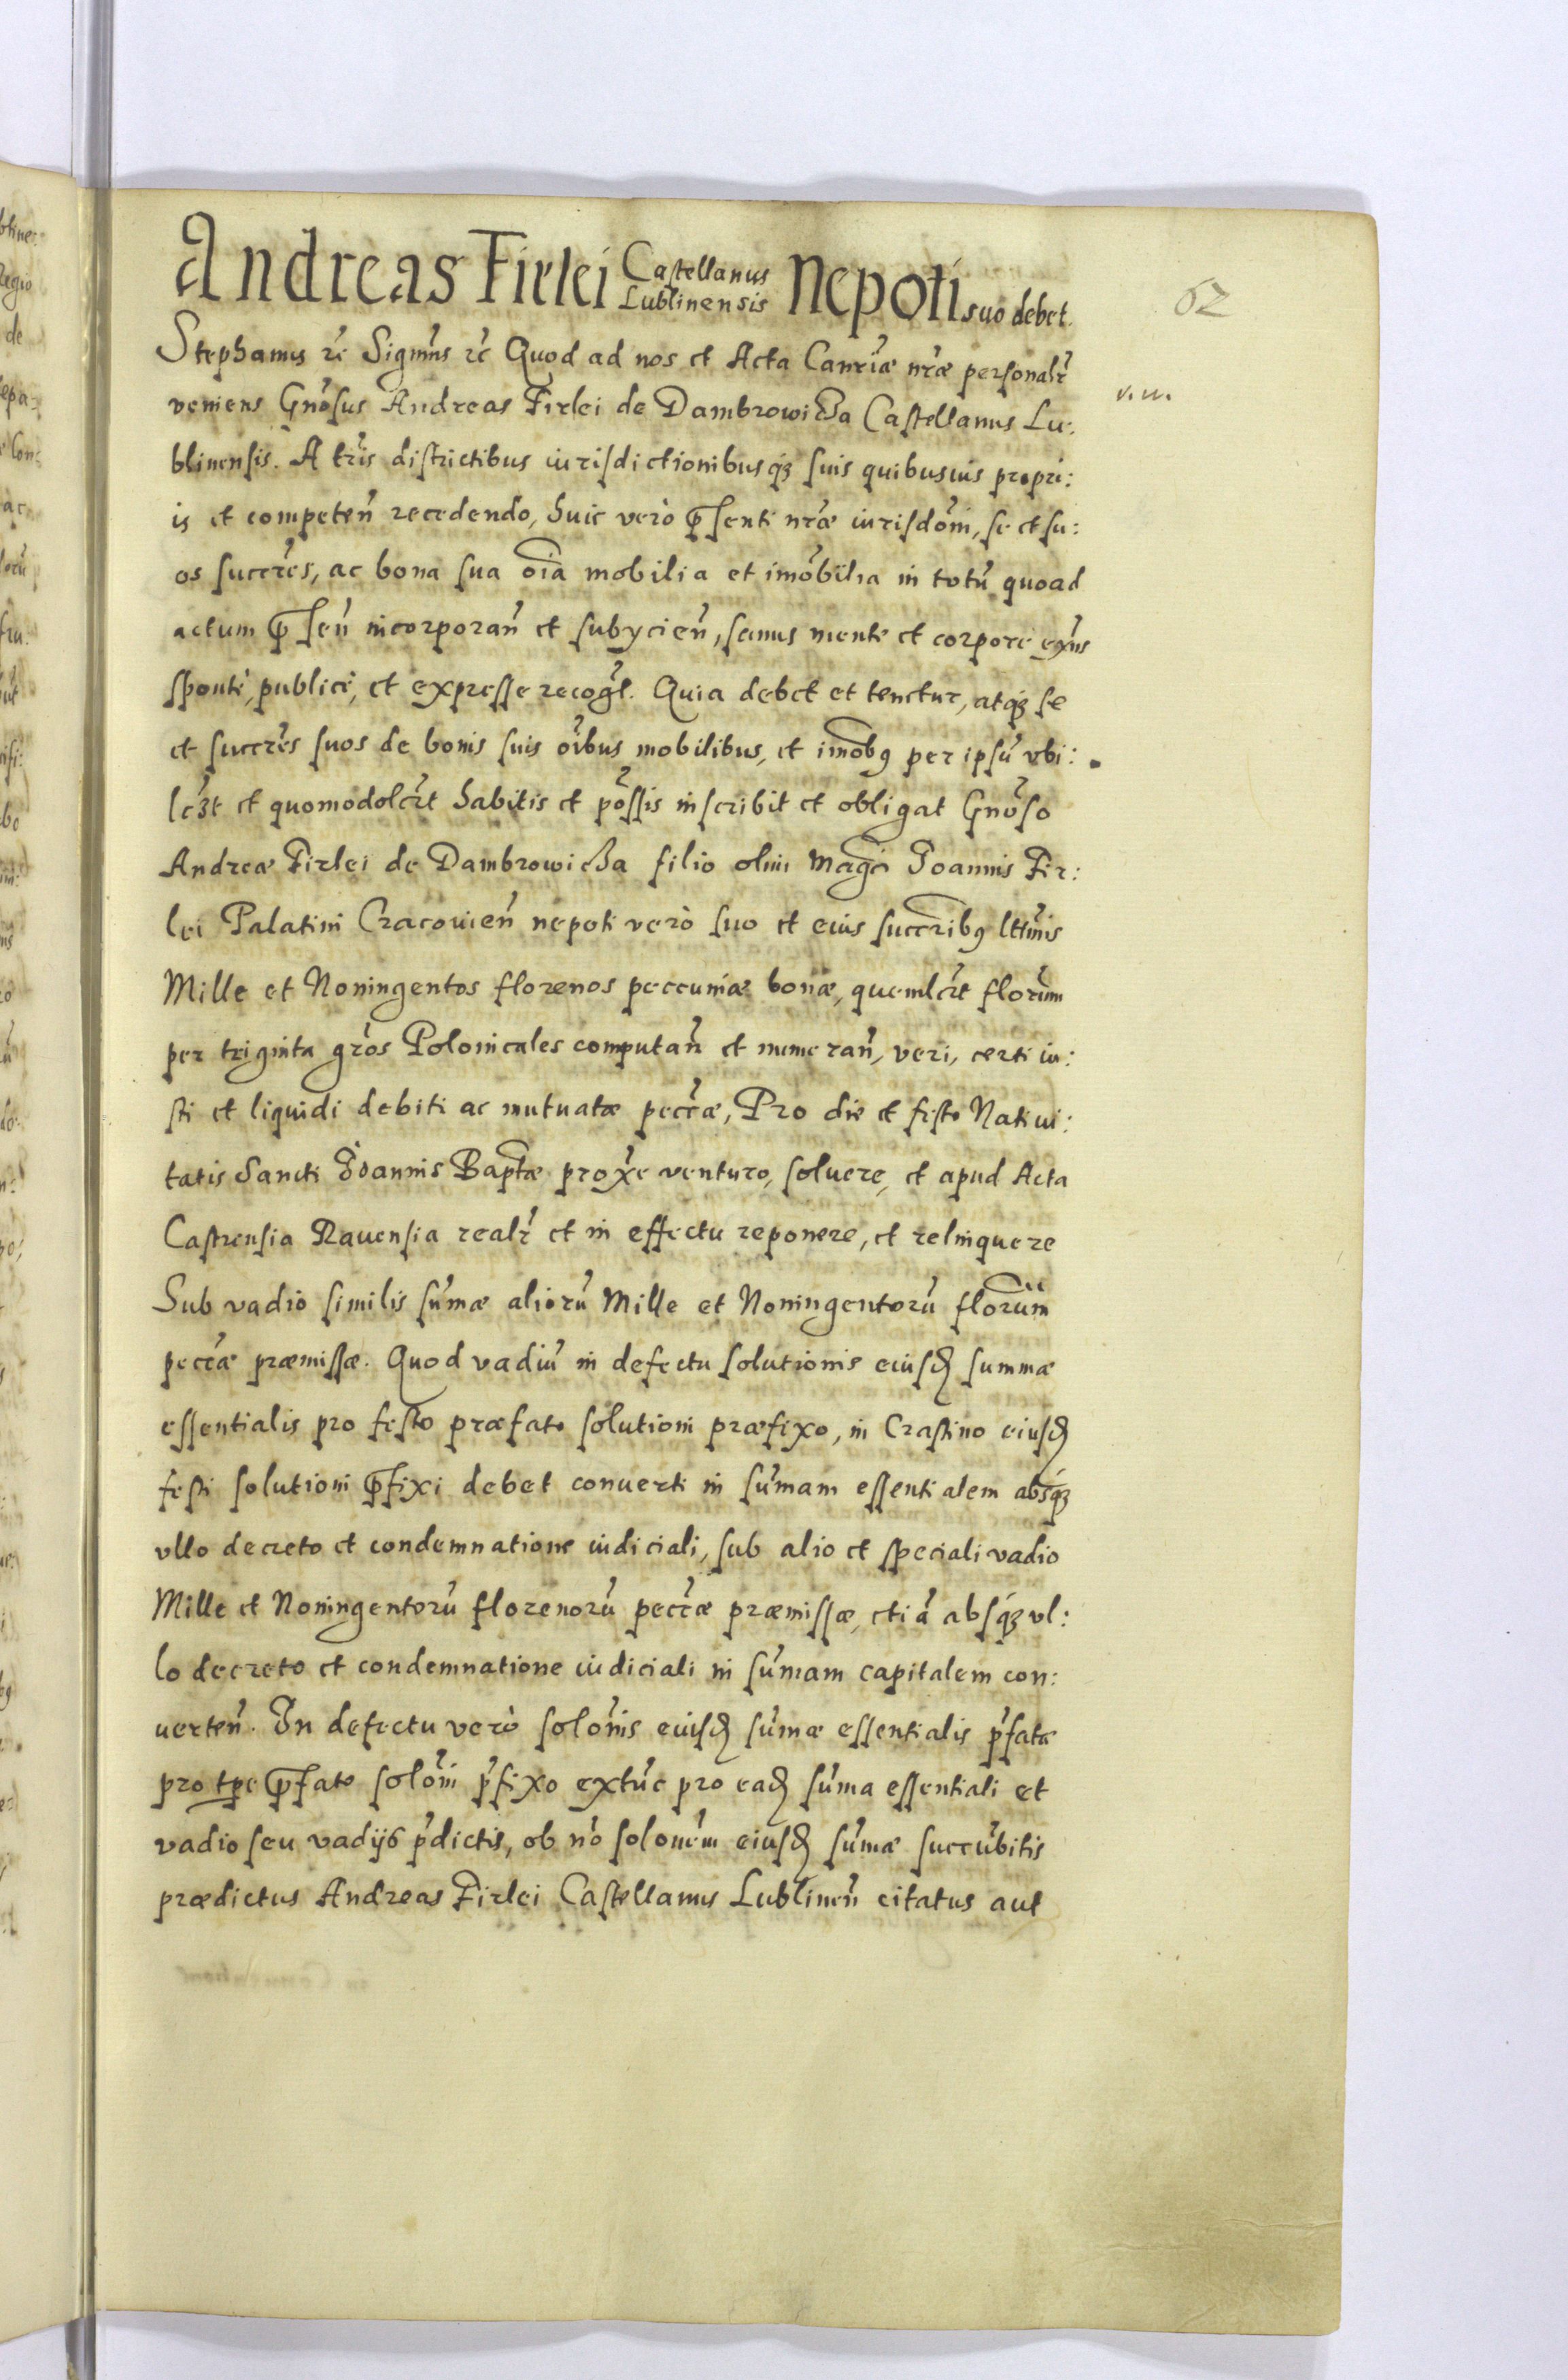 Andreas Firlei Castellanus Lublinensis Nepoti suo debet.
62
Stephanus rc̃ Signm̃s rc̃ Quod ad nos et Acta Canr̃iæ nr̃æ personalr̃
veniens Gnõsus Andreas Firlei de Dambrowicza Castellanus Lu:
v. w.
blinensis. A tr̃is districtibus iurisdictionibusqȝ suis quibusuis propri:
is et competen̄ recedendo, huic verò p̄senti nr̃æ iurisdõni, se et su:
os succr̃es, ac bona sua oĩa mobilia et imõbilia in totũ quoad
actum p̄sen̄ incorporan̄ et subycien̄, sanus mente et corpore exñs
spontè, publicè, et expresse recogl̃. Quia debet et tenetur, atqȝ se
et succr̃es suos de bonis suis oĩbus mobilibus, et imobꝰ per ipsũ vbi:
lc̃ȝt et quomodolc̃t habitis et põssis inscribit et obligat Gnõso
Andreæ Firlei de Dambrowicza filio olim Magci Joannis Fir:
lei Palatini Cracouien̄ nepoti verò suo et eius succr̃ibꝰ lttm̃is
Mille et Noningentos florenos peccuniæ bonæ, quemlc̃t flor̃um
per triginta gr̃os Polonicales computan̄ et numeran̄, veri, certi iu:
sti et liquidi debiti ac mutuatæ pecc̃æ, Pro die et festo Natiui:
tatis Sancti Joannis Baptæ prox̃e venturo, soluere, et apud Acta
Castrensia Rauensia realr̃ et in effectu reponere, et relinquere
Sub vadio similis sũmæ aliorũ Mille et Noningentorũ flõrum
pecc̃æ præmissæ. Quod vadiũ in defectu solutionis eiusd̃ summæ
essentialis pro festo præfato solutioni præfixo, in Crastino eiusd̃
festi solutioni p̄fixi debet conuerti in sũmam essentialem absqȝ
vllo decreto et condemnatione iudiciali, sub alio et speciali vadio
Mille et Noningentorũ florenorũ pecc̃æ præmissæ, etiã absqȝ vl:
lo decreto et condemnatione iudiciali in sũmam capitalem con:
uerten̄. In defectu verò solõnis eiusd̃ sũmæ essentialis p̃fatæ
pro tp̱e p̄fato solõni p̃fixo extũc pro ead̃ sũma essentiali et
vadio seu vadijs p̃dictis, ob nõ solonẽm eiusd̃ sũmæ succũbitis
prædictus Andreas Firlei Castellanus Lublinen̄ citatus aut